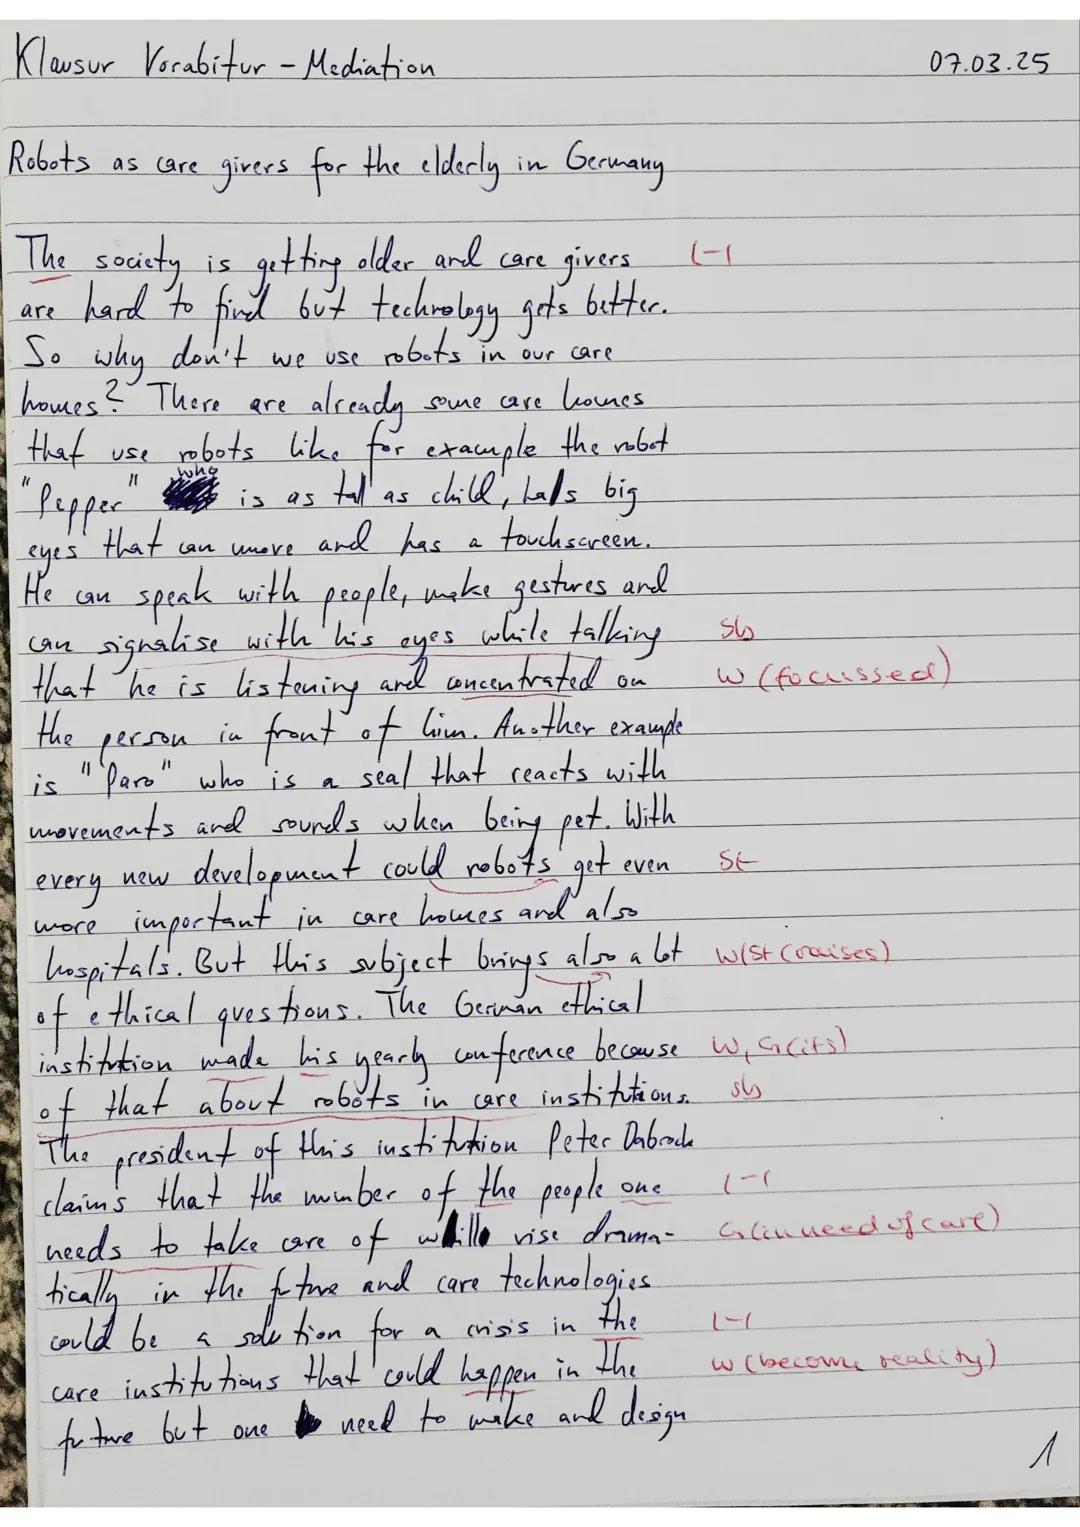 Klausur Vorabitur - Mediation 07.03.25
Robots as care givers for the elderly in Germany
The society is getting older and care givers (-)
are hard to find but technology gets better.
So why don't we use robots in our care
homes? There are already some care homes
that use robots like for example the robot
"Pepper" who is as tall as child, has big
eyes that can move and has a touchscreen.
He can speak with people, make gestures and
can signalise with his eyes while talking Sb
that he is listening and concentrated on W (focussed)
the person in front of him. Another example
is "Paro" who is a seal that reacts with
movements and sounds when being pet. With
every new development could robots get even St
more important in care homes and also
hospitals. But this subject brings also a lot W/St (raises)
of ethical questions. The German ethical
institution made his yearly conference because W, Gr(its)
of that about robots in care institutions. Sb
The president of this institution Peter Dabrock
claims that the number of the people one (-)
needs to take care of will rise drama- Gr(in need of care)
tically in the future and care technologies
could be a solution for a crisis in the (-)
care institutions that could happen in the W (become reality)
future but one need to make and design
1